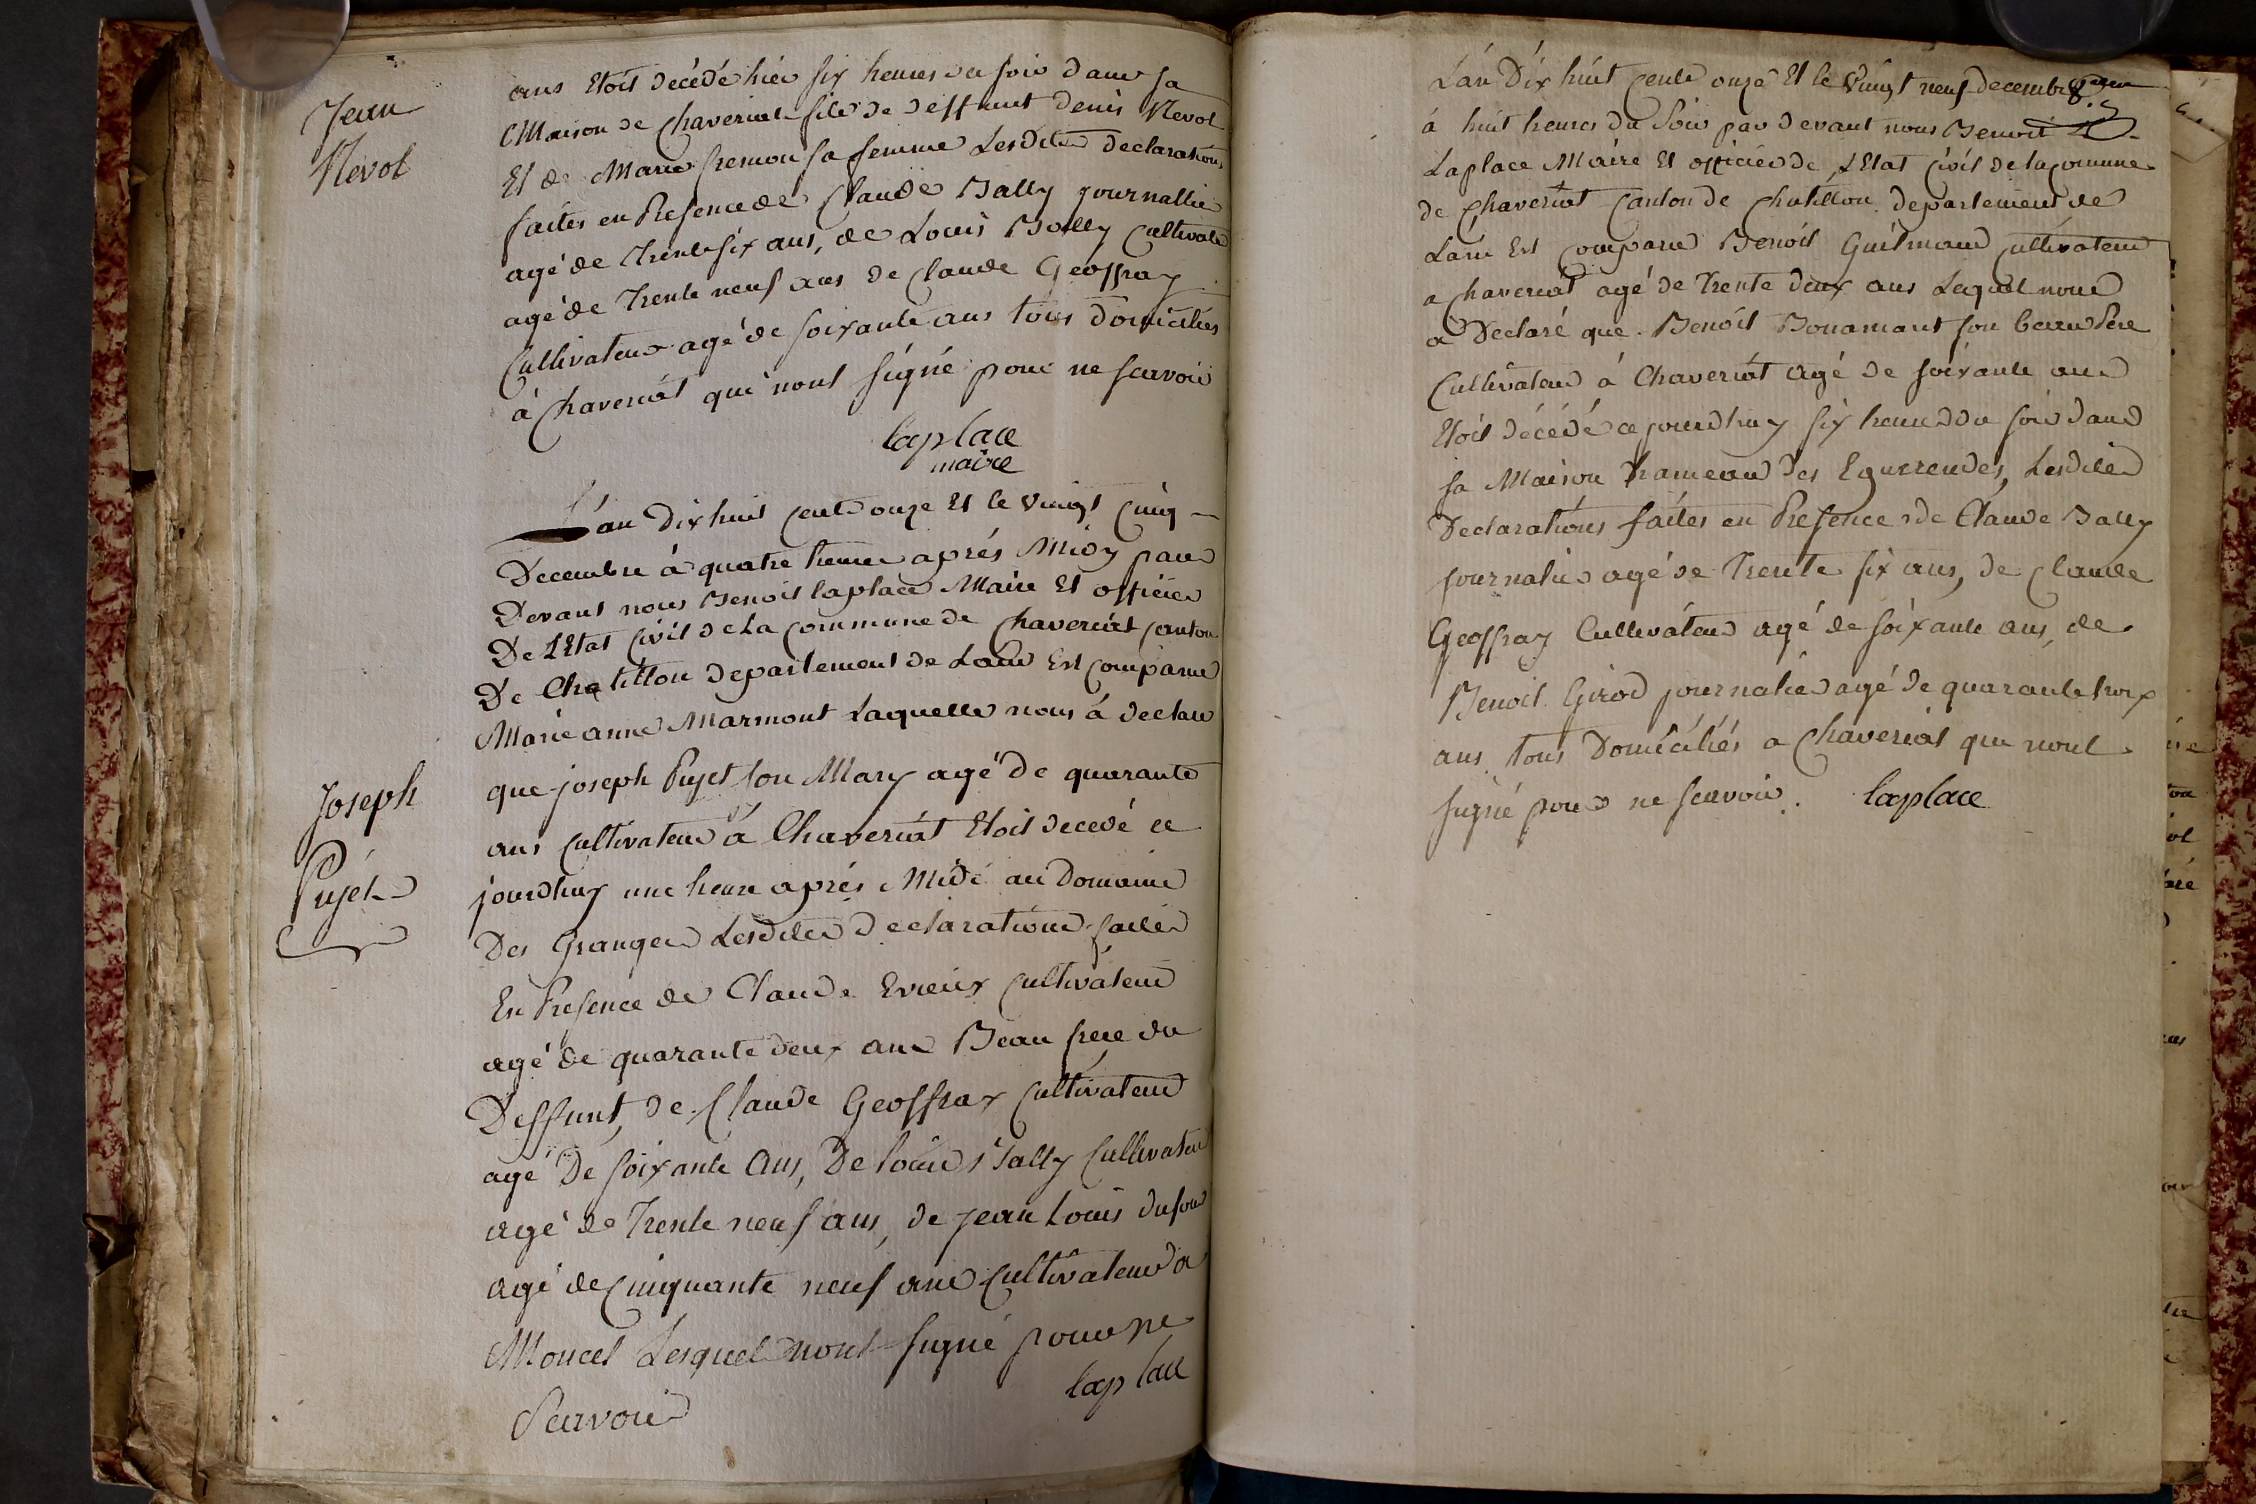 Jean
Nevol
ans Etoit décédé hier six heures du soir dans sa
Maison de Chaveriat fils de deffunt denis Nevol
Et de Marie fremon sa femme Lesdites declarations
faites en Presence de Claude Bally journallier
agé de Trente six ans, de Louis Bolly Cultivateur
agé de Trente neuf ans de Claude Geoffray
Cultivateur agé de soixante ans tous Domiciliés
à Chaveriat qui nont signé pour ne scavoir
laplace
maire
L'an Dix huit Cent onze Et le vingt Cinq
Decembre à quatre heures aprés Midy par
Devant nous Benoit laplace Maire Et officier
De LEtat Civil de La Commune de Chaveriat Canton
De Chatillon departement de Lain Est Comparue
Marie anne Marmont Laquelle nous à declaré
Joseph
Pujet
que joseph Pujet son Mary agé de quarante
ans Cultivateur à Chaveriat Etoit decedé ce
jourdhuy une heure aprés Midi au Domaine
Des Granges Lesdites declarations faites
En Presence de Claude Evieux Cultivateur
agé de quarante deux ans Beau frere du
Deffunt, de Claude Geoffray Cultivateur
agé De soixante Ans, De louis Bally Cultivateur
agé de Trente neuf ans, de jean Louis dufour
agé de Cinquante neuf ans Cultivateur a
Moncet Lesquels nont signé pour ne
Scavoir
laplace
Lán Dix huit Cents onze Et le Vingt neuf decembre
à huit heures du Soir par devant nous Benoit
Laplace Maire Et officier de LEtat Civil de la Commune
de Chaveriat Canton de Chatillon departement de
Láin Est Comparu Benoit Guilmaud Cultivateur
a Chaveriat agé de Trente deux ans Lequel nous
a Declaré que Benoit Bonamant son beau Pere
Cultivateur à Chaveriat agé de soixante ans
Etoit décédé ce jourdhuy six heures du soir dans
sa Maison hameau des Eguerendes, Lesdites
Declarations faites en Presence de Claude Bally
journalier agé de Trente six ans, de Claude
Geoffray Cultivateur agé de soixante ans, de
Benoit Girod journalier agé de quarante trois
ans tous Domiciliés a Chaveriat qui nont
signé pour ne scavoir. laplace